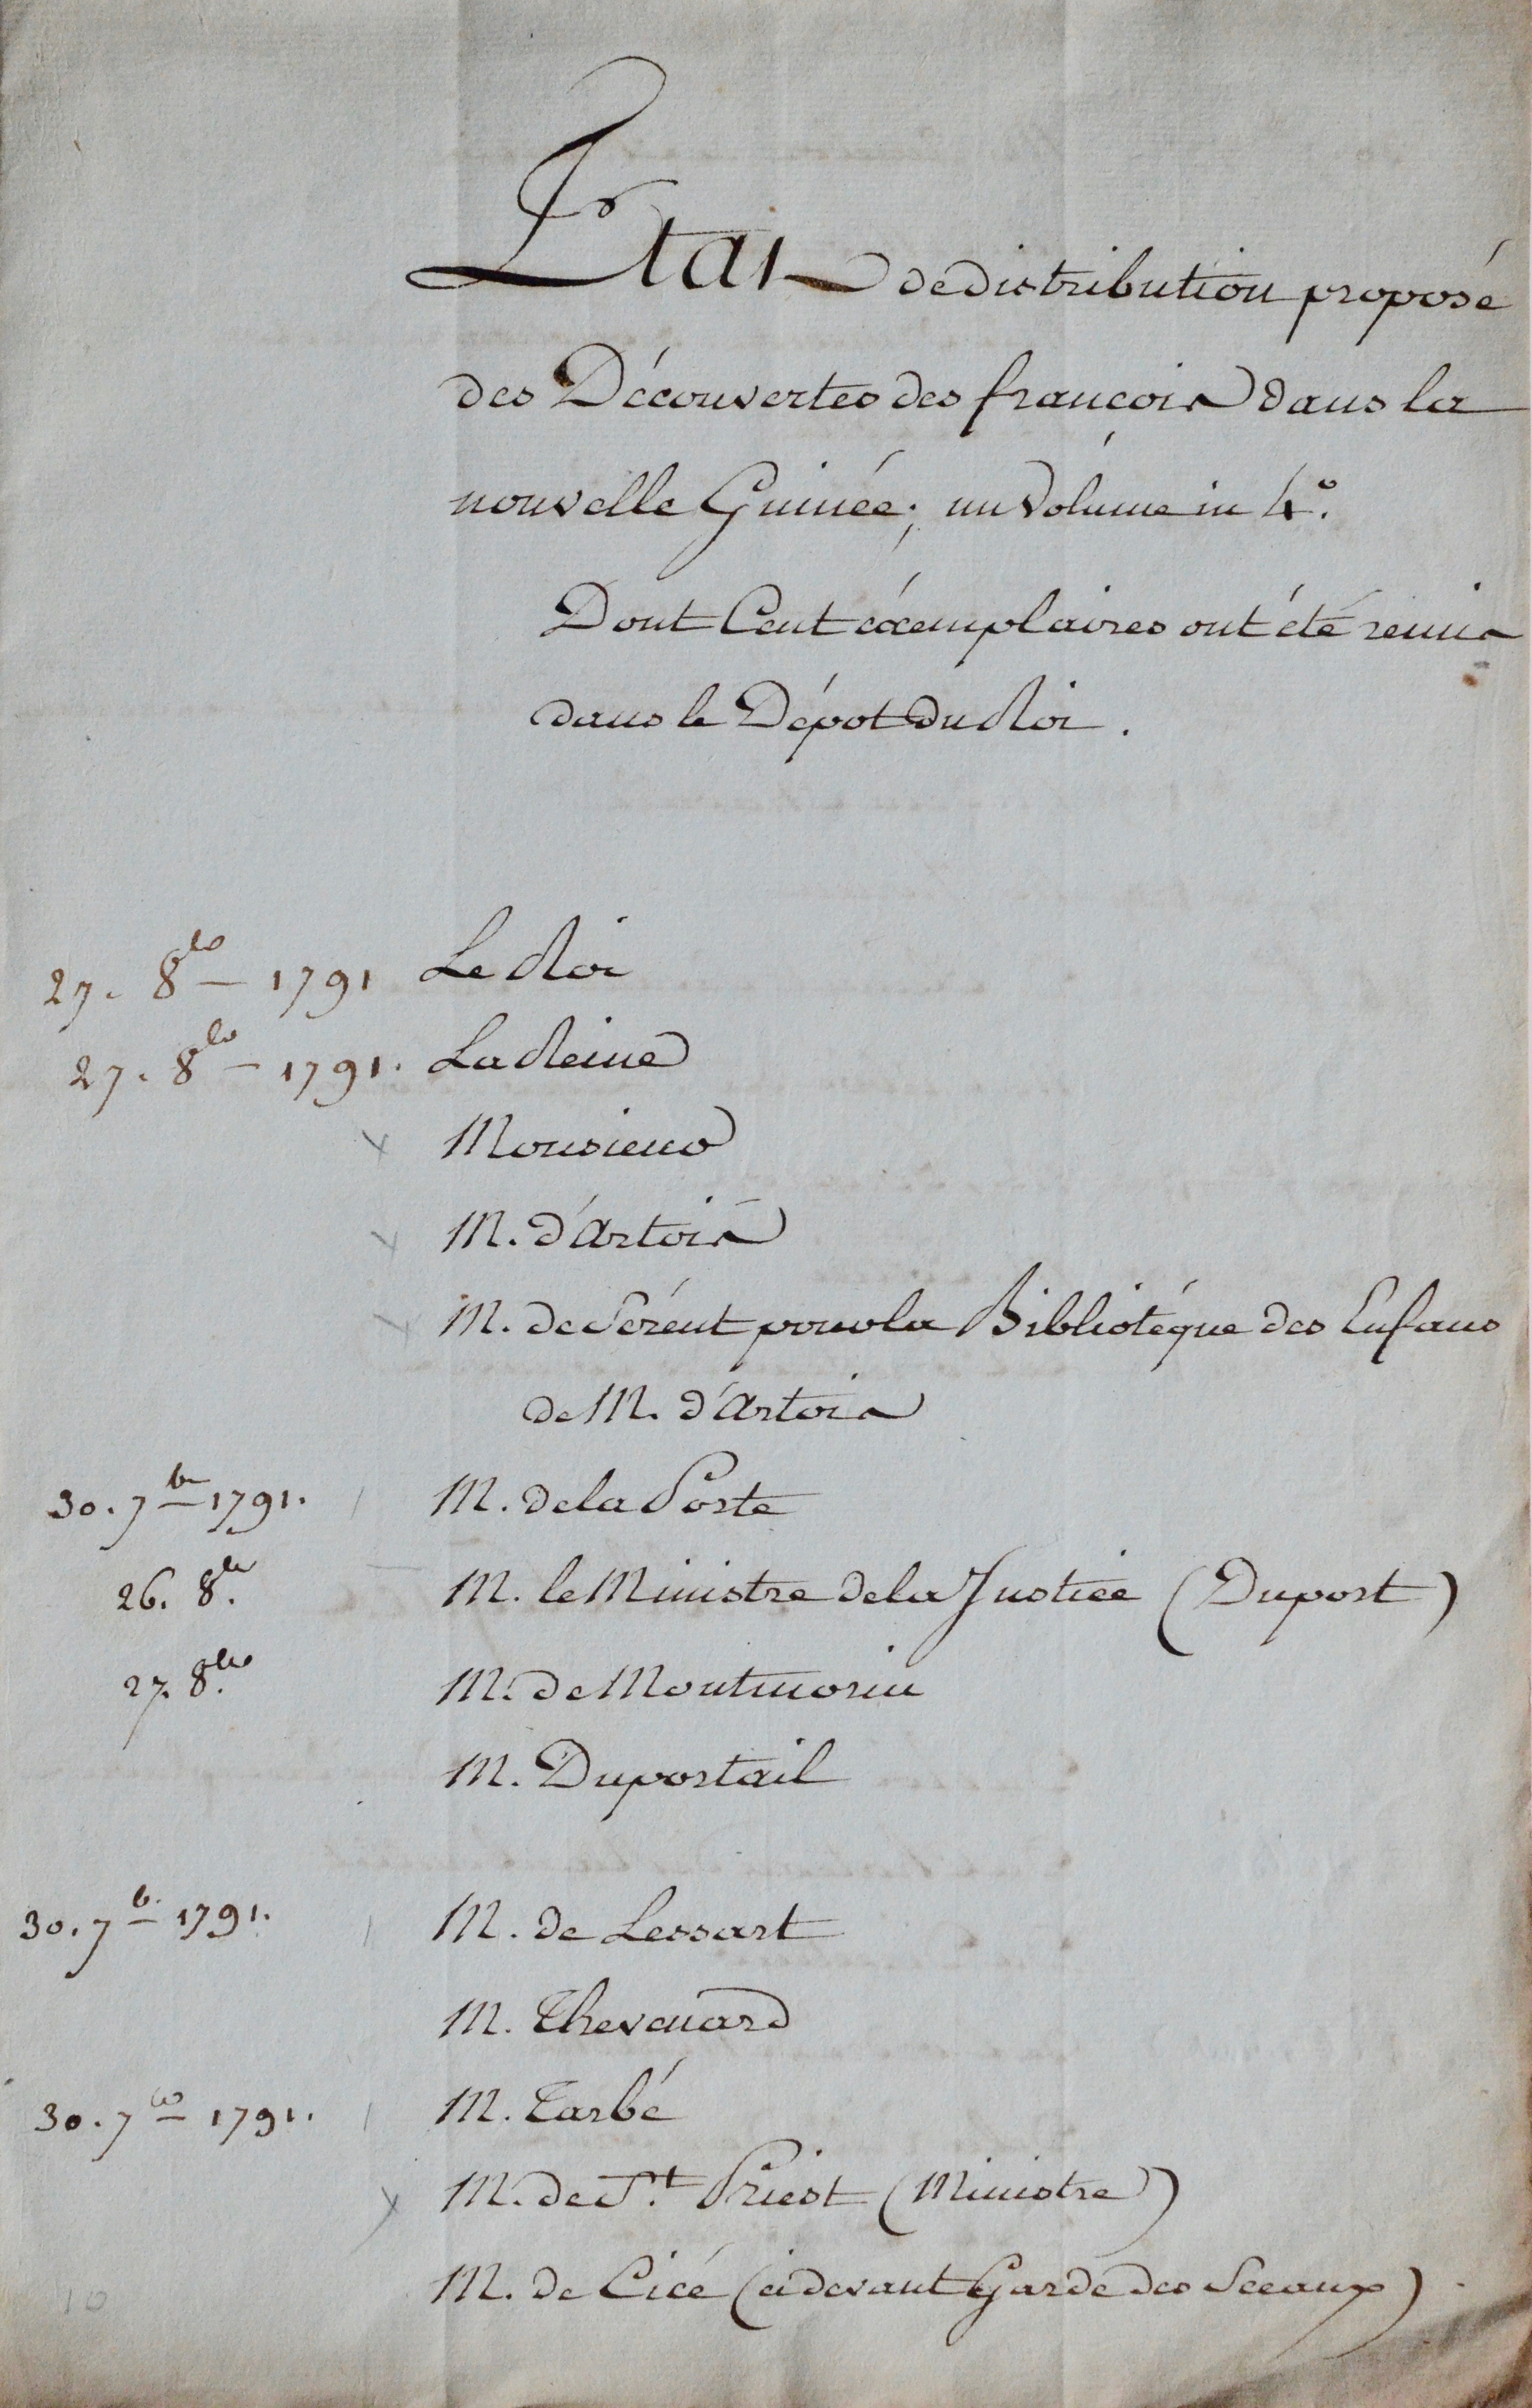 Etat de distribution proposé
des Découvertes des françois dans la
nouvelle Guinée; un Volume in 4.°
Dont Cent éxemplaires ont été remis
dans le Dépot du Roi.
27. 8bre 1791 Le Roi
27. 8bre 1791. La Reine
x Monsieur
x M. d'Artois
x M. de Sérent pour la Bibliotéque des Enfans
de M. d'Artois
30. 7bre 1791. M. de la Porte
26. 8bre M. le Ministre de la Justice (Duport)
27. 8bre M. de Montmorin
M. Duportail
30. 7b. 1791. M. de Lessart
M. Thevenard
30. 7bre 1791. M. Tarbé
x M. de St. Priest (Ministre)
M. de Cicé (ci devant Garde des Sceaux)
10